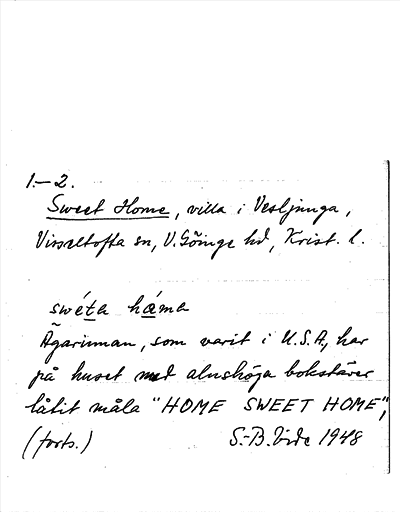 1.–2.
Sweet Home, villa i Vesljunga,
Visseltofta sn, V. Göinge hd, Krist. l.
swéta háma
Ägarinnan, som varit i U.S.A, har
på huset med alnshöga bokstäver
låtit måla "HOME SWEET HOME",
(forts.) S.-B. Vide 1948